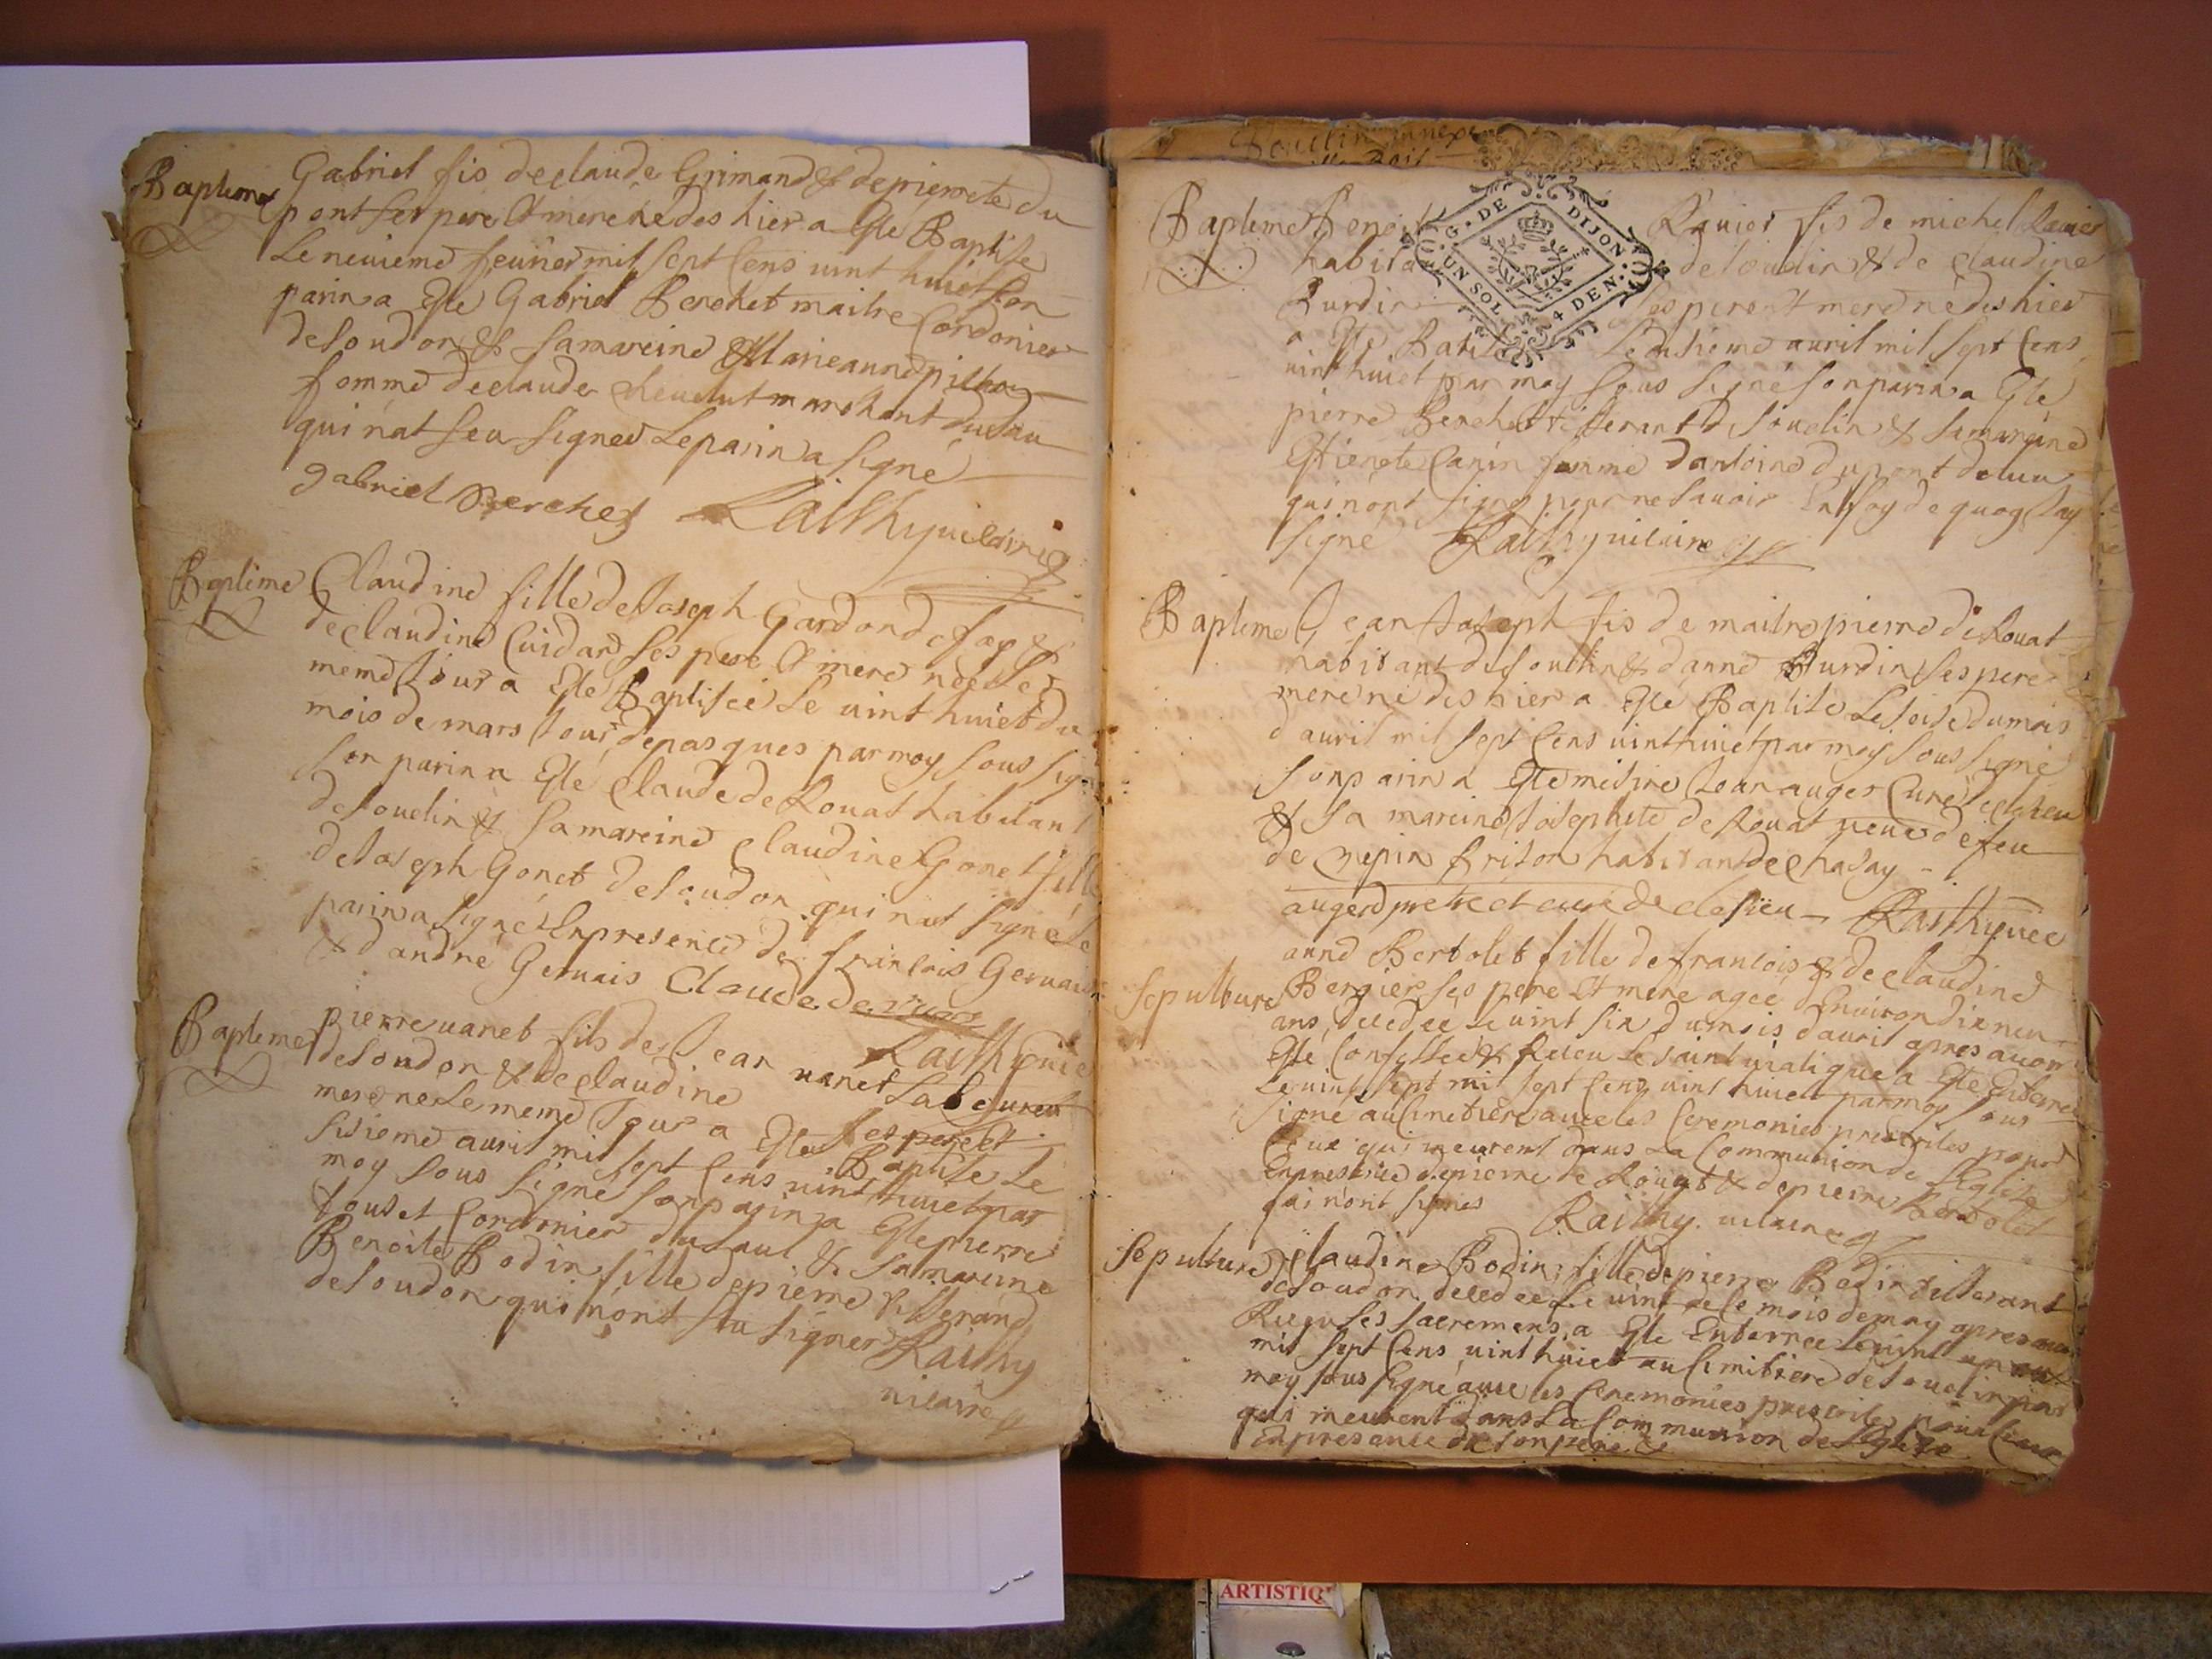 Bapteme
Gabriel fis de claude Grimand & de pierrete du
pont ses pere Et mere né des hier a Esté Baptise
Le neuieme feurier mil sept Cens uint huict son
parin a Esté Gabriel Berchet maitre Cordonier
de soudon & sa mareine Marie anne
femme de claude cheuelut marchant
qui n'at seu signer Le parin a signé
gabriel Berchet Raithy uicaire
Bapteme
Claudine fille de Joseph Gardon de fay &
de claudine Cuidard ses pere Et mere née Le
meme Jour a Esté Baptisée Le uint huict du
mois de mars Jour de pasques par moy sous sig
son parin a Esté claude de Rouat habitant
de souclin & sa mareine claudine Gonet fille
de Joseph Gonet de soudon qui n'at signé Le
parin a signé En presence de francois Geruais
& d'andré Geruais Claude de
Raithy uic
Bapteme
pierre uanet fils de Jean uanet Laboureur
de soudon & de claudine ses pere Et
mere né Le meme Jour a Esté Baptise Le
sisieme auril mil sept Cens uint huict par
moy sous signé son parin a Esté pierre
Jouset Cordonier du saul & sa mareine
Benoite Bodin fille de pierre tisserand
de soudon qui n'ont su signer Raithy
uicaire
Bouclin
G. DE DIJON
UN SOL 4 DEN.
Bapteme
Benoit Rauier fis de michel Rauier
habitant de souclin & de claudine
Burdin ses pere Et mere né des hier
a Esté Batise Le auril mil sept Cens
uint huict par moy sous signé son parin a Esté
pierre Berchet tisserant de souclin & sa mareine
Estienete Canin femme d'antoine dupont de
qui n'ont signé pour ne sauoir En foy de quoy Jay
signé Raithy uicaire
Bapteme
Jean Joseph fis de maitre pierre de Rouat
habitant de souclin & d'anne Burdin ses pere
mere né des hier a Esté Baptisé Le du mois
d'auril mil sept Cens uint huict par moy sous signé
son parin a Esté mesire Jean auger Curé de
& sa mareine Josephete de Rouat ueuue de feu
de Crepin frison habitant de chasay
auger pretre et curé de Raithy uic
Sepulture
anne Bertolet fille de francois & de claudine
Bergier ses pere Et mere agée d'Enuiron dix neu
ans, decedee Le uint six du mois d'auril apres auoir
Esté Confessée & Receu Le saint uiatique a Esté Enterrée
Le uint sept mil sept Cens uint huict par moy sous
signé au simetière auec les Ceremonies prescrites pour
Ceux qui meurent dans La Communion de l'Eglise
En presence de pierre de Rouat & de pierre Bertolet
qui n'ont signes Raithy uicaire
Sepulture
claudine Bodin fille de pierre Bodin tisserant
de soudon decedee Le uint de Ce mois de may apres auoir
Receu ses sacremens, a Esté Enterree Le uint un
mil sept Cens uint huict au simitiere de souclin par
moy sous signé auec les Ceremonies prescrites pour Ceux
qui meurent dans La Communion de l'Eglise
En presence de son pere &
ARTISTIQ